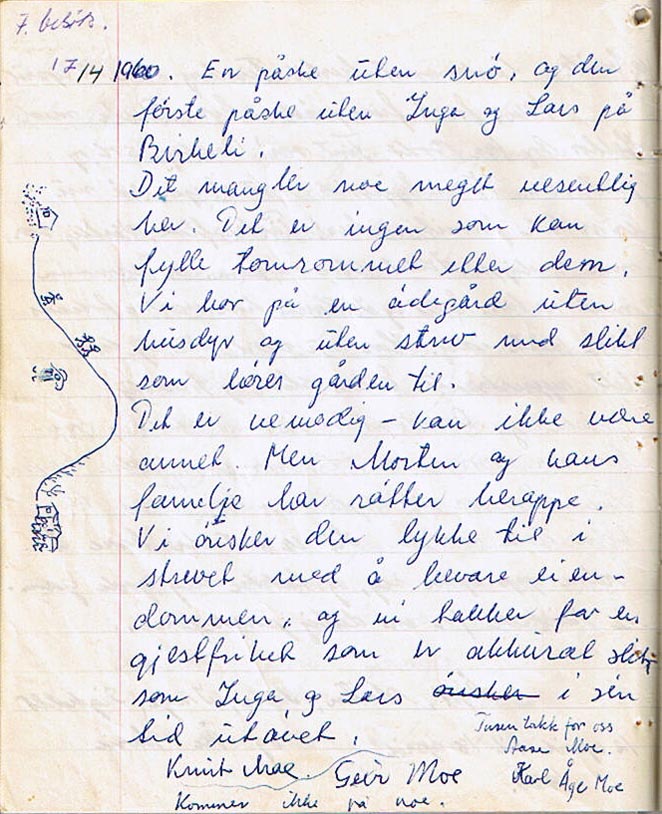 7. besök.
17/4 1960. En påske uten snö, og den
förste påske uten Inga og Lars på
Birkeli.
Det mangler noe meget vesentlig
her. Det er ingen som kan
fylle tomrommet etter dem.
Vi bor på en ödegård uten
husdyr og uten strev med slikt
som hörer gården til.
Det er vemodig – kan ikke være
annet. Men Morten og hans
familje har rötter heroppe.
Vi önsker dem lykke til i
strevet med å bevare eien-
dommen, og vi takker for en
gjestfrihet som er akkurat slik
som Inga og Lars önsker i sin
tid utövet.
Tusen takk for oss
Aase Moe.
Knut Moe. Geir Moe Karl Åge Moe
Kommer ikke på noe.